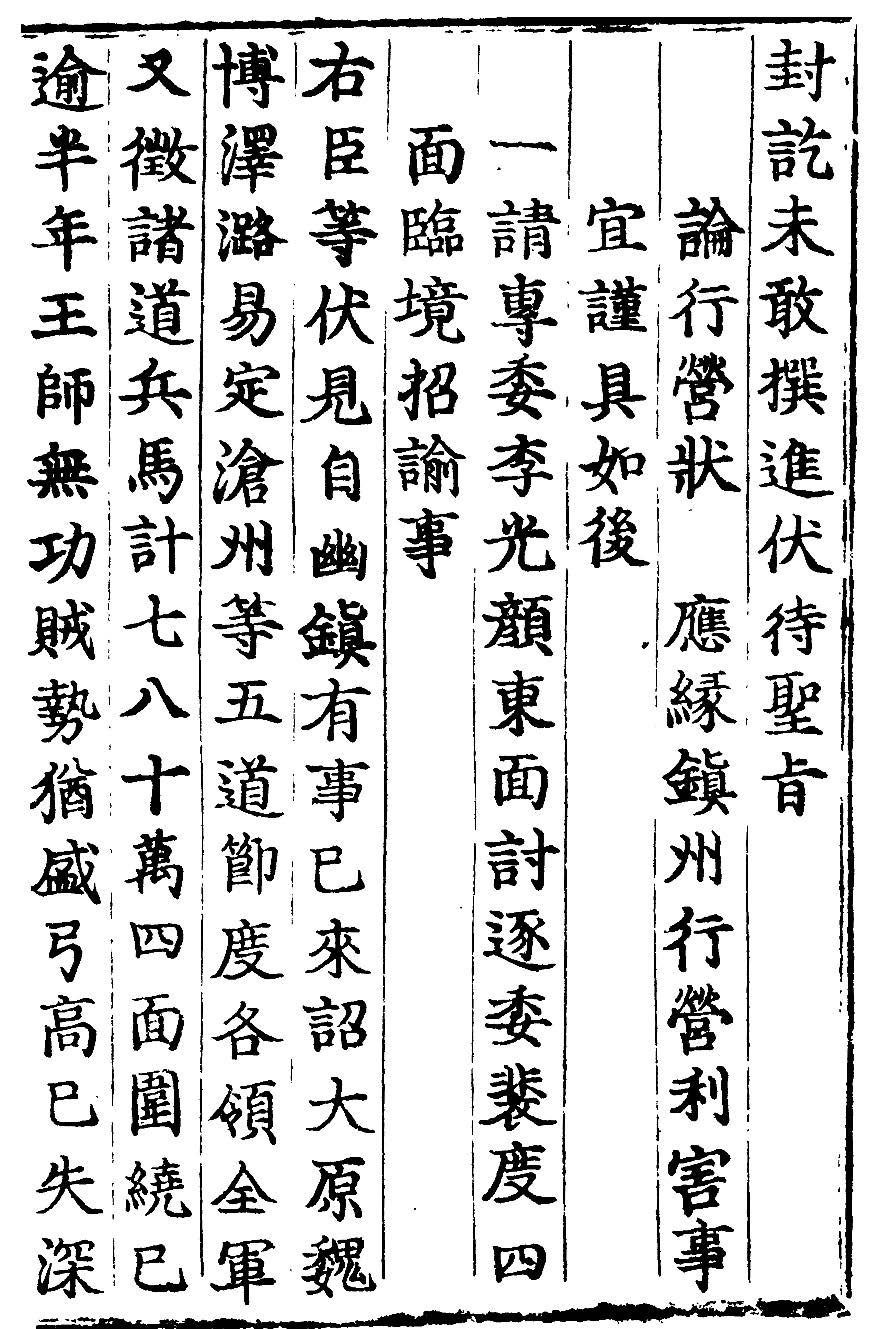 封訖未敢撰進伏待聖旨
論行營狀　應緣鎮州行營利害事
宜謹具如後
一請專委李光顏東面討逐委裴度四
面臨境招諭事
右臣等伏見自幽鎮有事已來詔大原魏
博澤潞易定滄州等五道節度各領全軍
又徵諸道兵馬計七八十萬四面圍繞已
逾半年王師無功賊勢猶盛弓高已失深